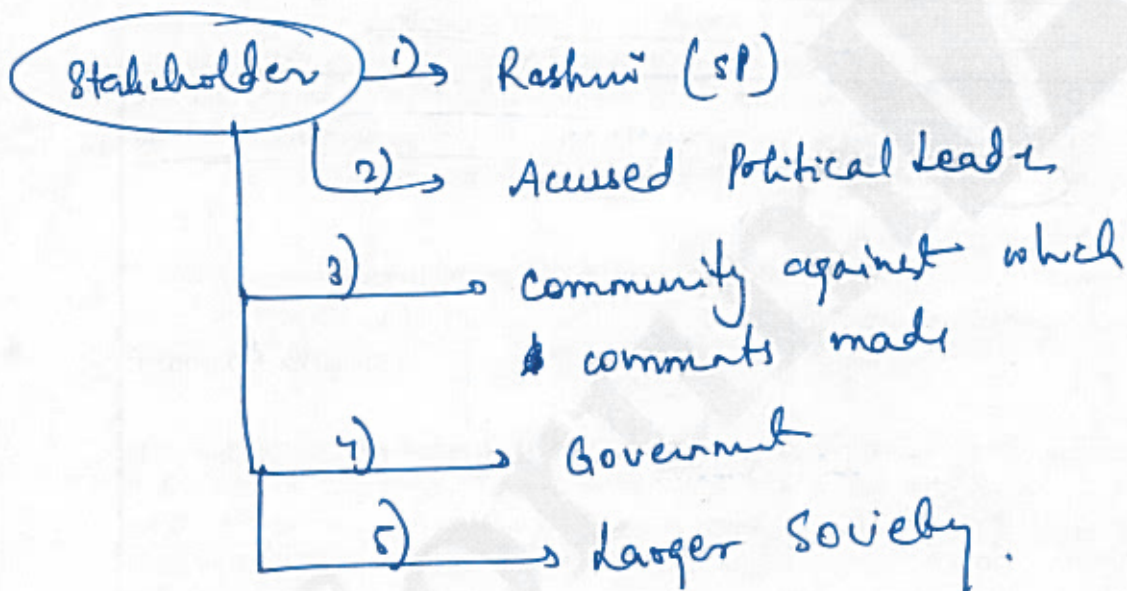 Stakeholder 1) Rashmi (SP)
2) Accused Political Leader
3) Community against which
comments made
4) Government
5) Larger Society.